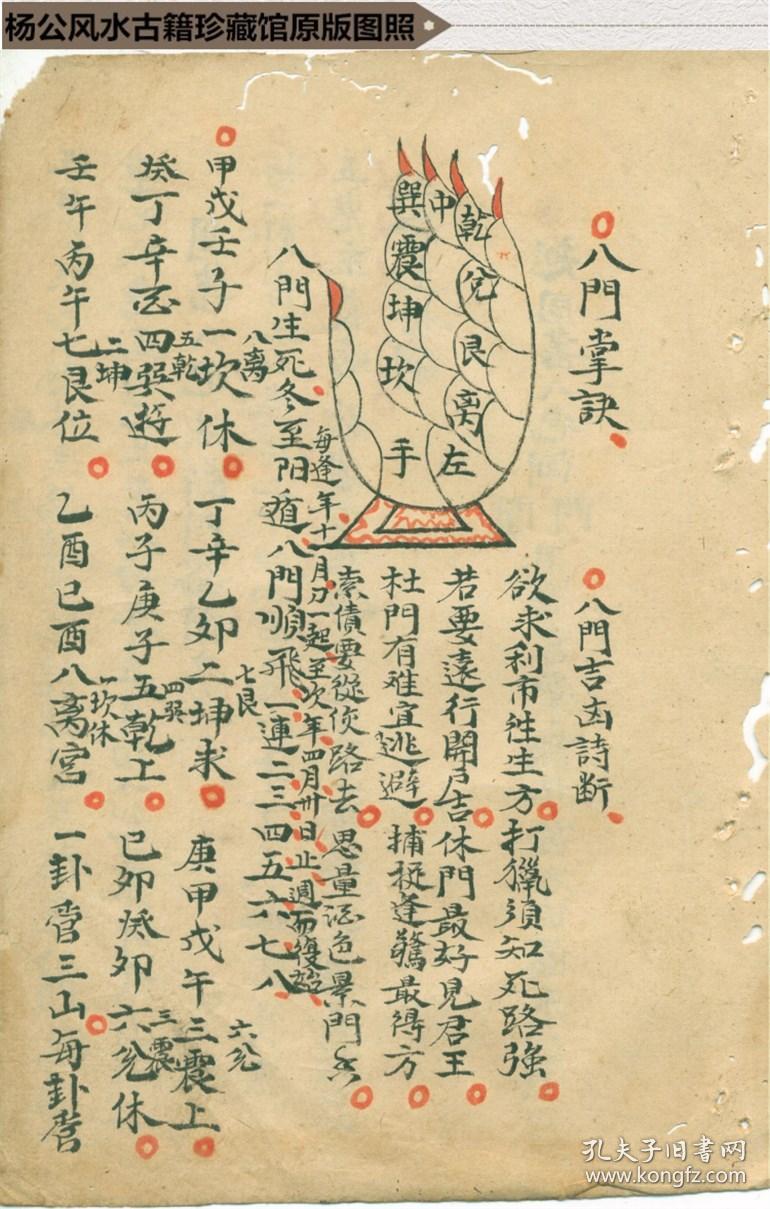 杨公风水古籍珍藏馆原版图照
八門掌訣
巽 中 乾
震 兌
坤 艮
坎 离
手 左
八門吉凶詩断
欲求利市往生方 打獵須知死路強
若要遠行開門吉 休門最好見君王
杜門有难宜逃避 捕捉逢驚最得方
索債要從傷路去 思量酒色景門
八門生死冬至阳遁八門順飛一連二三四五六七八
每逢年十一月初一起至次年四月卅日止週而復始
甲戊壬子一坎休 丁辛乙卯二坤求 庚甲戊午三震上
八离 七艮 六兌
癸丁辛酉四巽逰 丙子庚子五乾上 己卯癸卯六兌休
五乾 四巽 三震
壬午丙午七艮位 乙酉己酉八离宮 一卦管三山每卦管
二坤 一坎休
孔夫子旧书网
www.kongfz.com